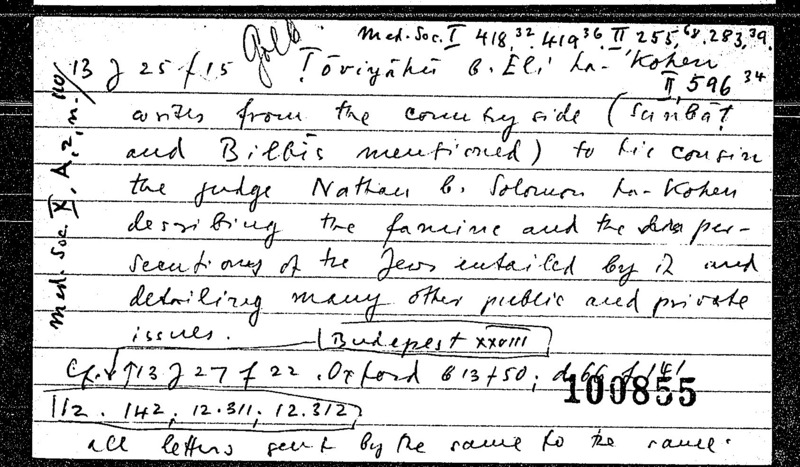 Golb
Med. Soc. I 418,32. 419,36. II 255,68. 283,39.
13 J 25 f 15 Ṭōviyāhū b. Eli ha-Kohen
II, 596 34
Med. Soc. X, A, 2, n. 110
writes from the country side (Sunbāṭ
and Bilbīs mentioned) to his cousin
the judge Nathan b. Solomon ha-Kohen
describing the famine and the per-
secutions of the Jews entailed by it and
detailing many other public and private
issues. (Budapest XXVIII)
Cf. 13 J 27 f 22. Oxford b 13 f 50; d 66 f 141
100855
112. 142; 12.311; 12.312
all letters sent by the same to the same.